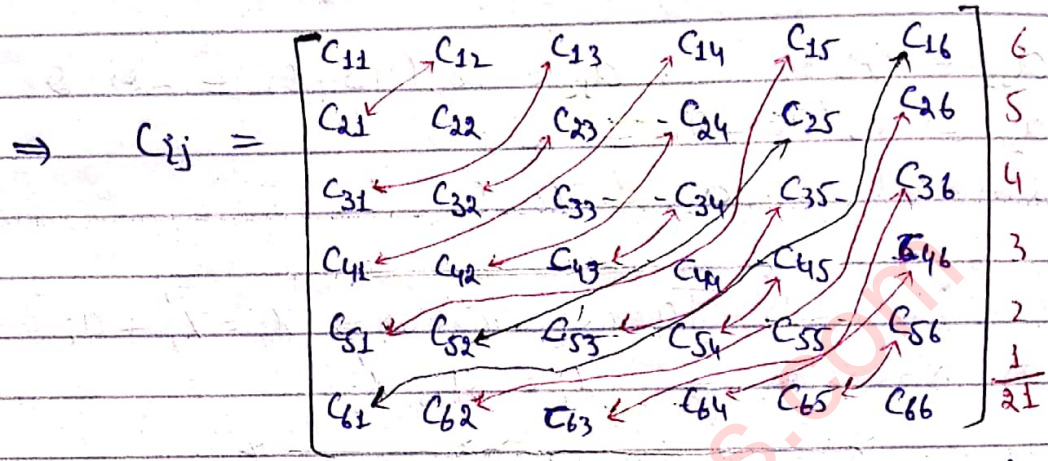 C11 C12 C13 C14 C15 C16 6
C21 C22 C23 C24 C25 C26 5
⇒ Cij = C31 C32 C33 C34 C35 C36 4
C41 C42 C43 C44 C45 C46 3
C51 C52 C53 C54 C55 C56 2
1
C61 C62 C63 C64 C65 C66 21
s.com